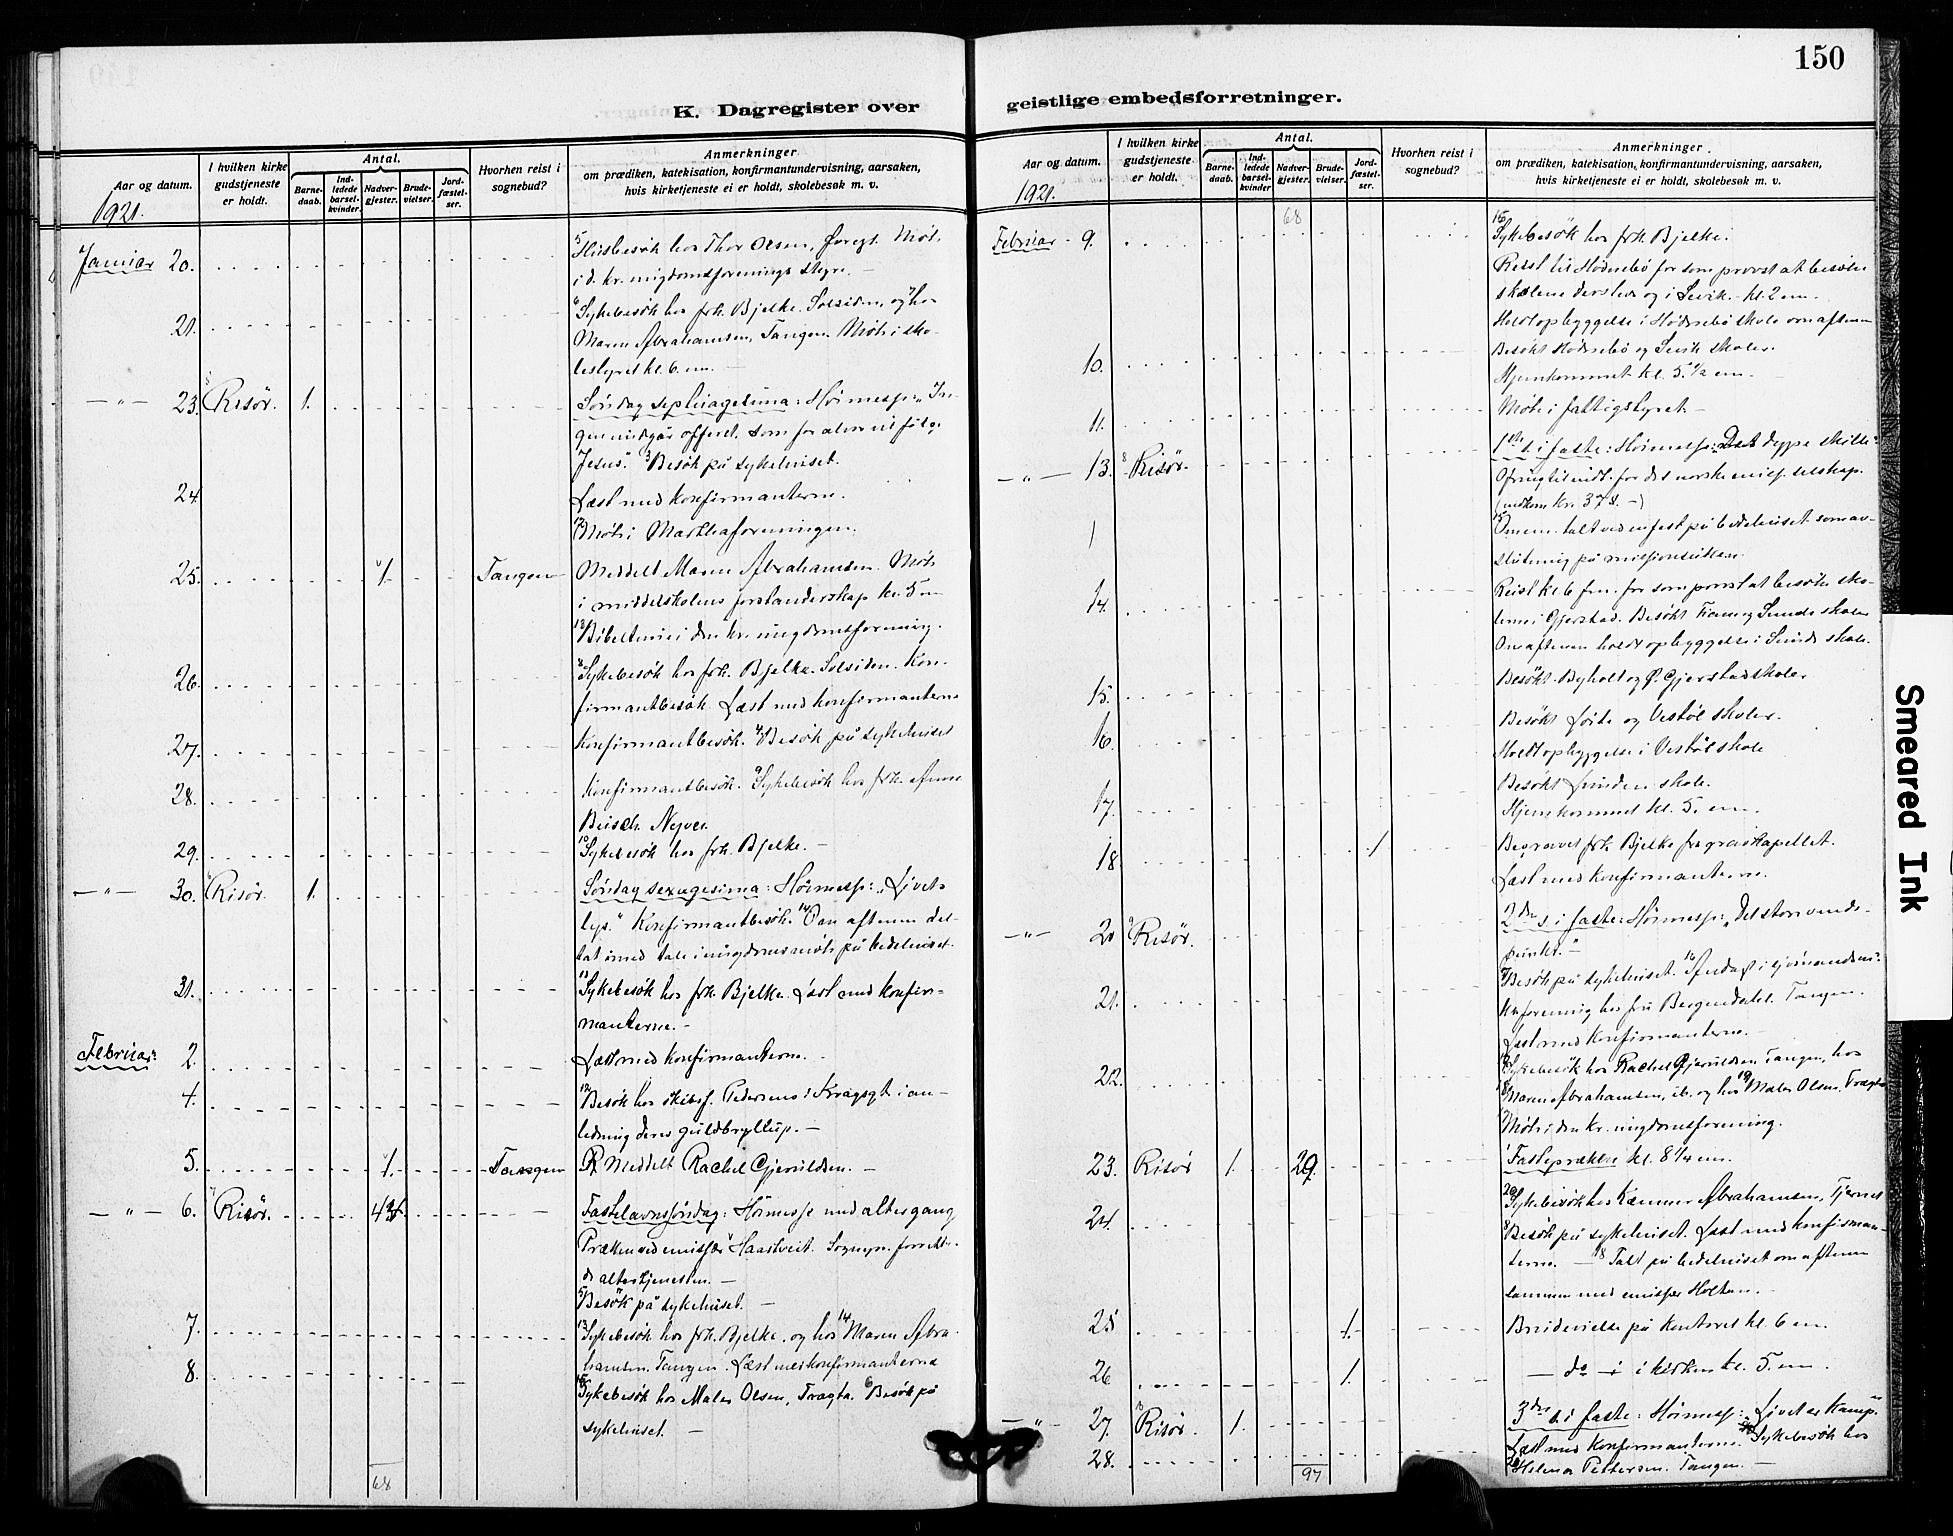 150
K. Dagregister over
geistlige embedsforretninger.
Aar og datum.
I hvilken kirke gudstjeneste er holdt.
Antal.
Barnedaab.
Indledede barselkvinder.
Nadvergjester.
Brudevielser.
Jordfæstelser.
Hvorhen reist i sognebud?
Anmerkninger
om prædiken, katekisation, konfirmantundervisning, aarsaken,
hvis kirketjeneste ei er holdt, skolebesøk m. v.
1921.
Januar 20. Husbesøk hos Thor Olsen, Møte
i d. kr. ungdomsforenings styre. —
21. Sykebesøk hos frk. Bjelke. Solsiden, og hos
Maren Abrahamsen, Tangen. Møte i sko-
lestyret kl. 6. em. —
— " — 23. Risør. 1. Søndag septuagesima: Høimesse: "In-
gen undgår offeret, som for alvor vil følge
Jesus". Besøk på sykehuset.
24. Læst med konfirmanterne.
Møte i Marthaforeningen.
25. 1. Tangen Meddelt Maren Abrahamsen. Møte
i middelskolens forstanderskap kl. 5 em
Bibeltime i den kr. ungdomsforening.
26. Sykebesøk hos frk. Bjelke. Solsiden. Kon-
firmantbesøk. Læst med konfirmanterne
27. Konfirmantbesøk. Besøk på sykehuset
28. Konfirmantbesøk. Sykebesøk hos frk. Anne
29. Sykebesøk hos frk. Bjelke. —
— " — 30. Risør. 1. Søndag sexagesima: Høimesse: "Livets
lys." Konfirmantbesøk. Om aftenen del-
tat med tale i ungdomsmøte på bedehuset.
31. Sykebesøk hos frk. Bjelke. Læst med konfir-
manterne. —
Februar: 2. Læst med konfirmanterne.
4. Besøk hos skibsf. Pedersens i Kragsgt i an-
ledning deres guldbryllup. —
5. 1. Tangen Meddelt Rachel Gjeruldsen. —
— " — 6. Risør. Fastelavnssøndag: Høimesse med altergang
Præken ved emissær Haastveit. Sognepr. forrette-
de altertjenesten. —
Besøk på sykehuset. —
7. Sykebesøk hos frk. Bjelke, og hos Maren Abra-
hamsen. Tangen. Læst med konfirmanterne
8. Sykebesøk hos Males Olsen, Tragta. Besøk på
sykehuset. —
68
Aar og datum.
I hvilken kirke gudstjeneste er holdt.
Antal.
Barnedaab.
Indledede barselkvinder
Nadvergjester.
Brudevielser.
Jordfæstelser.
Hvorhen reist i sognebud?
Anmerkninger.
om prædiken, katekisation, konfirmantundervisning, aarsaken,
hvis kirketjeneste ei er holdt, skolebesøk m. v.
1921.
68
Februar 9. Sykebesøk hos frk. Bjelke.
Reist til Hødnebø for som provst at besøke
skolene dersteds og i Levik. kl. 2 em.
Holdt opbyggelse i Hødnebø skole om aftenen
10. Besøkt Hødnebø og Levik skoler.
Hjemkommet kl. 5 1/2 em. —
11. Møte i fattigstyret. —
— " — 13. Risør. 1ste s. i faste: Høimesse: "Det dype skille"
Ofring til indt. for det norske miss. selskap.
(indkom kr. 378. —)
Om em. talt ved en fest på bedehuset som av-
slutning på misjonsuken.
14. Reist kl. 6 fm. for som provst at besøke sko-
lerne i Gjerstad. Besøkt Fiane og Sunde skoler
Om aftenen holdt opbyggelse i Sunde skole.
15. Besøkt Byholt og Ø. Gjerstad skoler
16. Besøkt Løite og Vestøl skoler.
Holdt opbyggelse i Vestøl skole
17. Besøkt Lunden skole.
Hjemkommet kl. 5. em.
18 1 Begravet frk. Bjelke fra gravkapellet.
Læst med konfirmanterne.
— " — 20 Risør. 2den s. i faste: Høimesse: "Det store vende-
punkt." —
21. Besøk på sykehuset. Andagt i sjømandsmi-
forening hos fru Bergendahl. Tangen.
Læst med konfirmanterne. —
22. Sykebesøk hos Rachel Gjeruldsen Tangen, hos
Maren Abrahamsen, ib. og hos Males Olsen, Tragta
Møte i den kr. ungdomsforening.
23. Risør 1. 29. Fastepræken kl. 8 1/4 em.
24. Sykebesøk hos Kæmner Abrahamsen, Tjernet
Besøk på sykehuset. Læst med konfirman-
terne. — Talt på bedehuset om aftenen
sammen med emissær Holtan. —
25 1. Brudevielse på kontoret kl. 6 em.
26 1. — do — i kirken kl. 5. em.
— " — 27. Risør. 1. 3die s. i faste: Høimesse: "Livet er kamp."
28. Læst med konfirmanterne. Sykebesøk hos
Helena Pettersen. Tangen. —
97
Smeared Ink